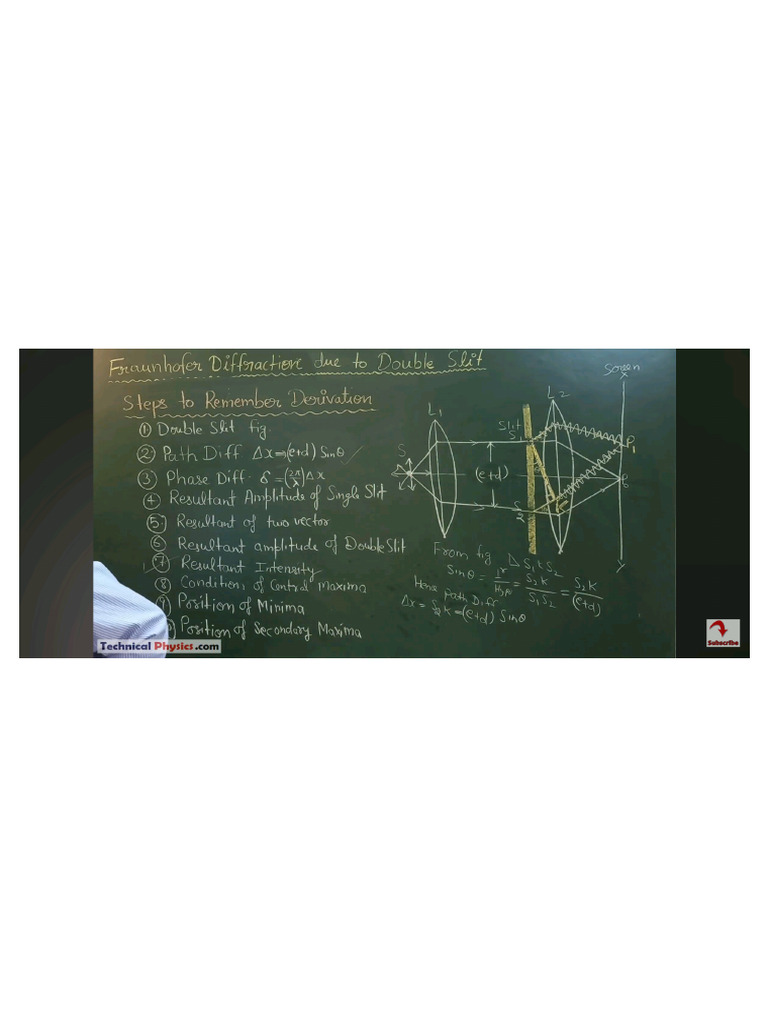 Fraunhofer Diffraction due to Double Slit
Steps to Remember Derivation
① Double Slit fig.
② Path Diff Δx⇒(e+d) Sinθ
③ Phase Diff. δ=(2π/λ)Δx
④ Resultant Amplitude of Single Slit
⑤ Resultant of two vector
⑥ Resultant amplitude of Double Slit
⑦ Resultant Intensity
⑧ Condition of Central maxima
⑨ Position of Minima
Position of Secondary Maxima
Technical Physics.com
Screen
L1
L2
Slit
S
S1
P1
(e+d)
S2
From fig Δ S1 K S2
Sinθ = = S2K/S1S2 = S2K/(e+d)
Hence Path Diff
Δx = S2K = (e+d) Sinθ
Subscribe